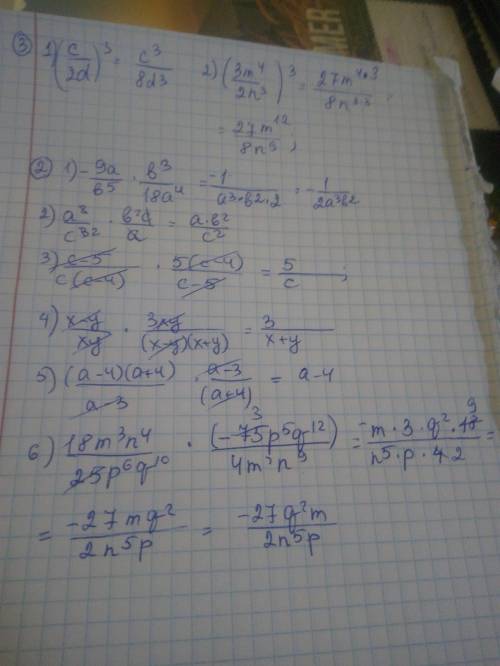 ③ 1) (c/2d)³ = c³/8d³   2) (3m⁴/2n³)³ = 27m⁴·³/8n³·³ =
= 27m¹²/8n⁹;
② 1) -9a/b⁵ · b³/18a⁴ = -1/a³·b²·2 = -1/2a³b²
2) a²/c³ · b²c/a = a·b²/c²
3) c-5/c(c-4) · 5(c-4)/c-5 = 5/c;
4) x-y/xy · 3xy/(x-y)(x+y) = 3/x+y
5) (a-4)(a+4)/a-3 · a-3/(a+4) = a-4
6) 18m³n⁴/25p⁶q¹⁰ · (-75p⁵q¹²)/4m²n⁹ = -m·3·q²·18 9/n⁵·p·4 2 =
= -27mq²/2n⁵p = -27q²m/2n⁵p